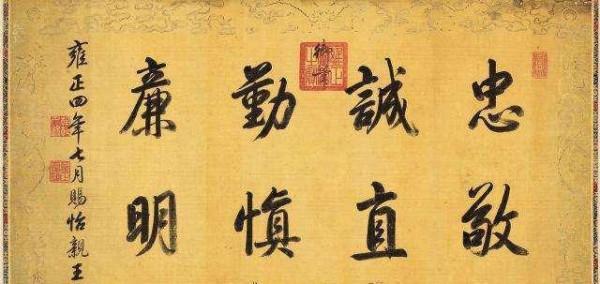 忠敬
誠直
御
勤慎
廉明
雍正四年七月賜怡親王